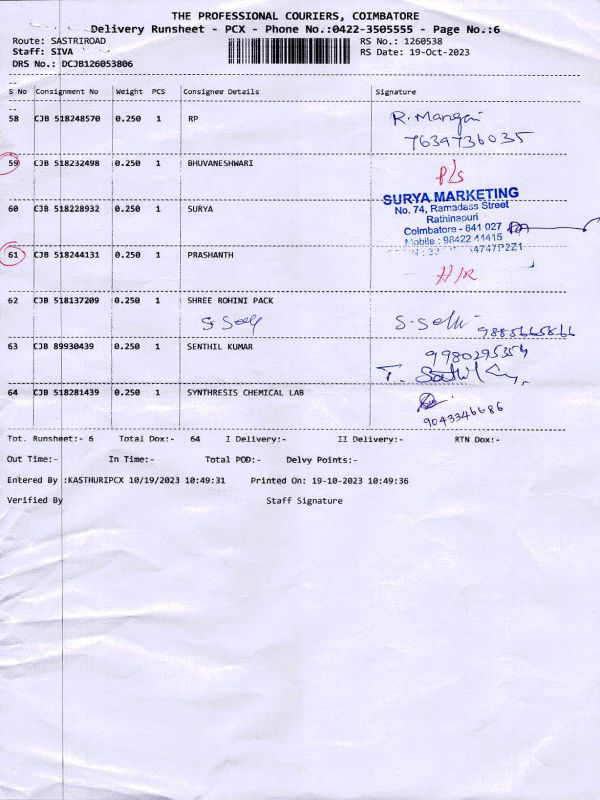 THE PROFESSIONAL COURIERS, COIMBATORE
Delivery Runsheet - PCX - Phone No.:0422-3505555 - Page No.:6
Route: SASTRIROAD RS No.: 1260538
Staff: SIVA RS Date: 19-Oct-2023
DRS No.: DCJB126053806
S No Consignment No Weight PCS Consignee Details Signature
58 CJB 518248570 0.250 1 RP R. Mangai
7639736035
59 CJB 518232498 0.250 1 BHUVANESHWARI
P/s
SURYA MARKETING
No. 74, Ramadass Street
60 CJB 518228932 0.250 1 SURYA Rathinapuri
Coimbatore - 641 027
Mobile : 98422 41415
61 CJB 518244131 0.250 1 PRASHANTH
H/R
62 CJB 518137209 0.250 1 SHREE ROHINI PACK
S. Selvi
63 CJB 89930439 0.250 1 SENTHIL KUMAR 9980295354
64 CJB 518281439 0.250 1 SYNTHRESIS CHEMICAL LAB
9043346686
Tot. Runsheet:- 6 Total Dox:- 64 I Delivery:- II Delivery:- RTN Dox:-
Out Time:- In Time:- Total POD:- Delvy Points:-
Entered By :KASTHURIPCX 10/19/2023 10:49:31 Printed On: 19-10-2023 10:49:36
Verified By Staff Signature